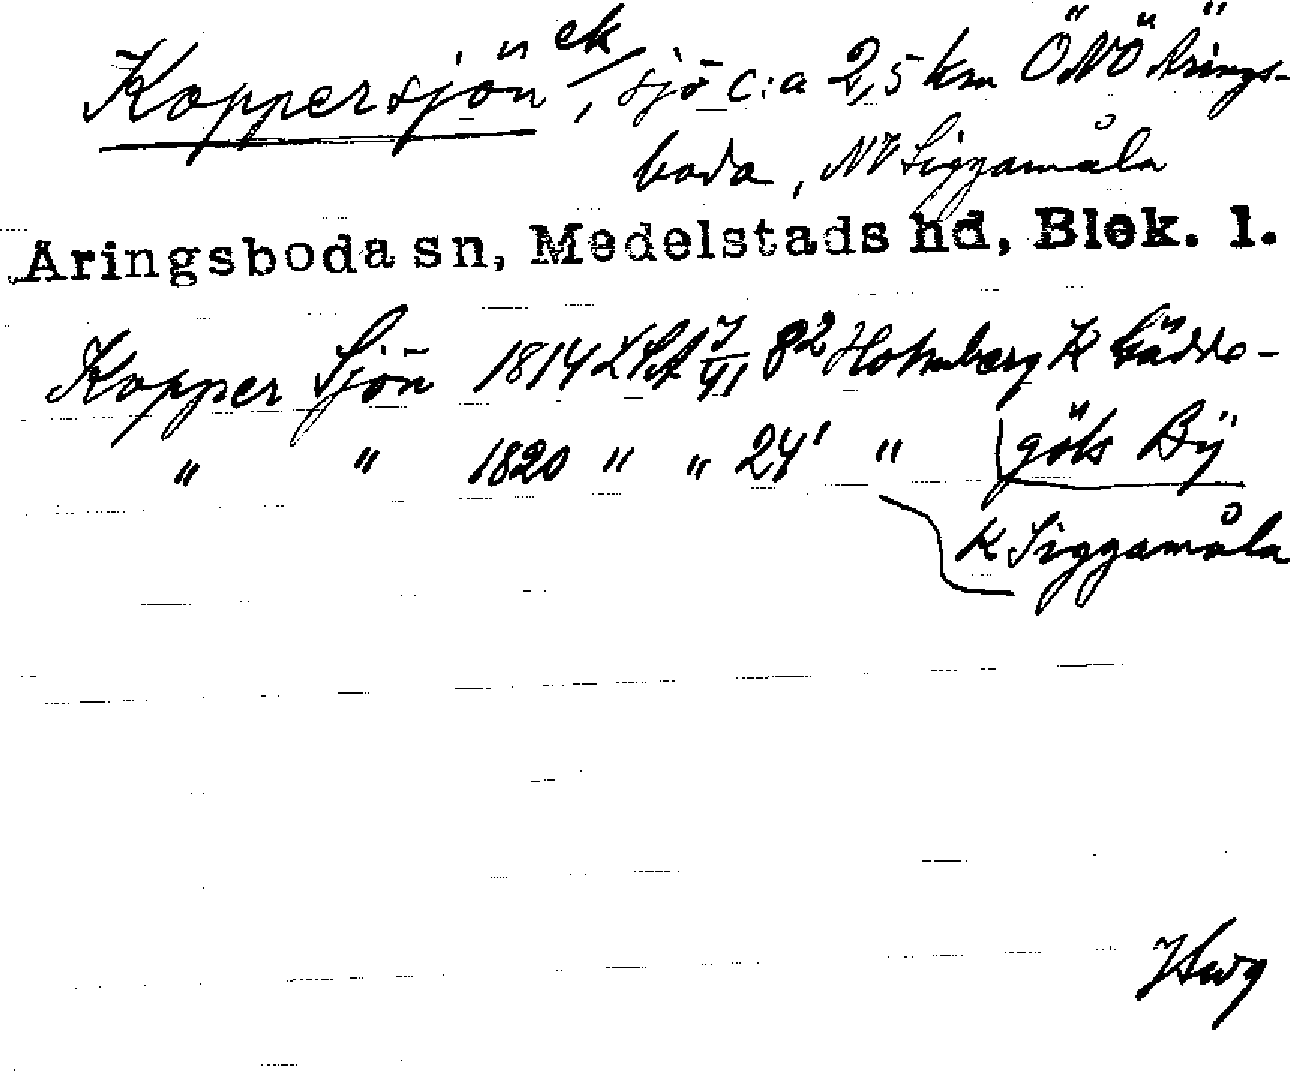 Koppersjön ek/, sjö c:a 2,5 km ÖNÖ Ärings-
boda, NV Siggamåla
Äringsboda sn, Medelstads hd, Blek. l.
Kopper Sjön 1814 LSA 82 Holmberg K Gädde-
" " 1820 " " 24' " göls By
K Siggamåla